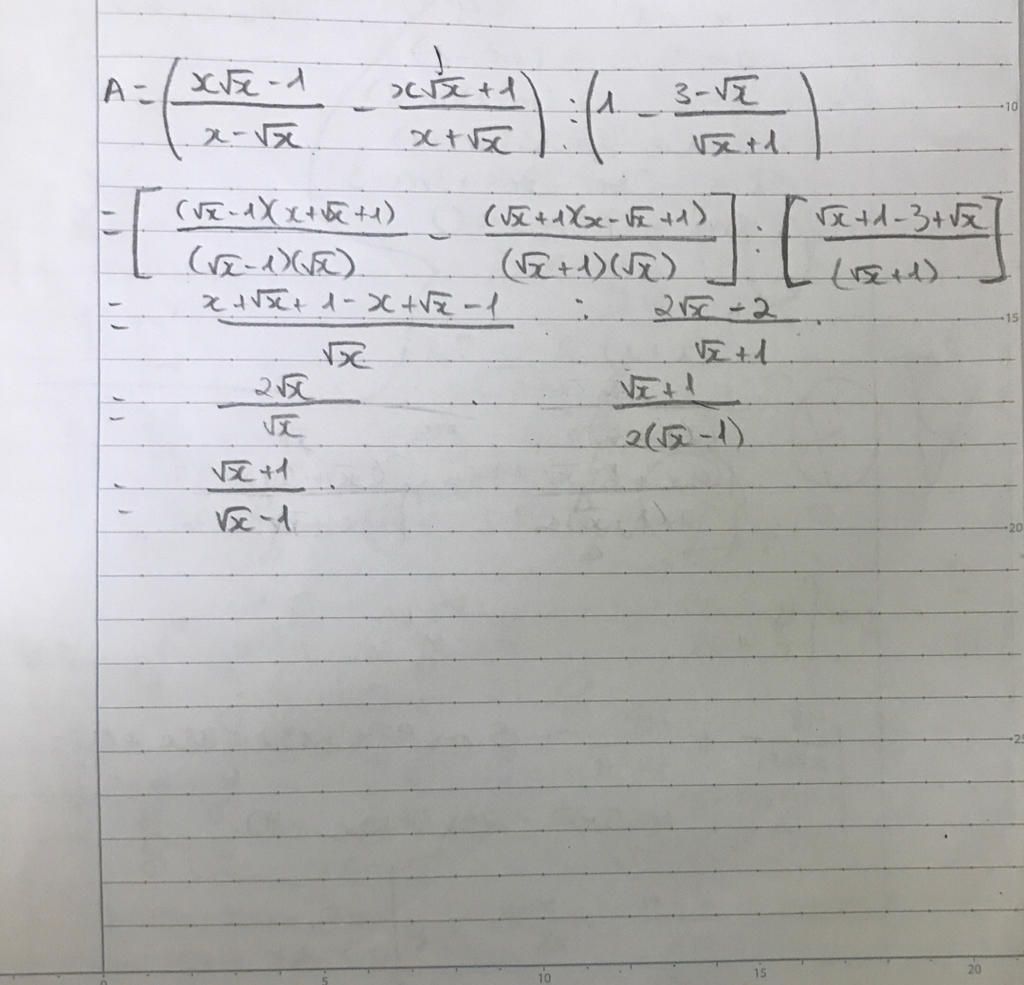 A = ( (x√x - 1)/(x - √x) - (x√x + 1)/(x + √x) ) : ( 1 - (3 - √x)/(√x + 1) )
= [ (√x - 1)(x + √x + 1)/(√x - 1)(√x) - (√x + 1)(x - √x + 1)/(√x + 1)(√x) ] : [ (√x + 1 - 3 + √x)/(√x + 1) ]
= (x + √x + 1 - x + √x - 1)/√x : (2√x - 2)/(√x + 1)
= 2√x/√x . (√x + 1)/2(√x - 1)
= (√x + 1)/(√x - 1) .
10
15
20
25
0 5 10 15 20